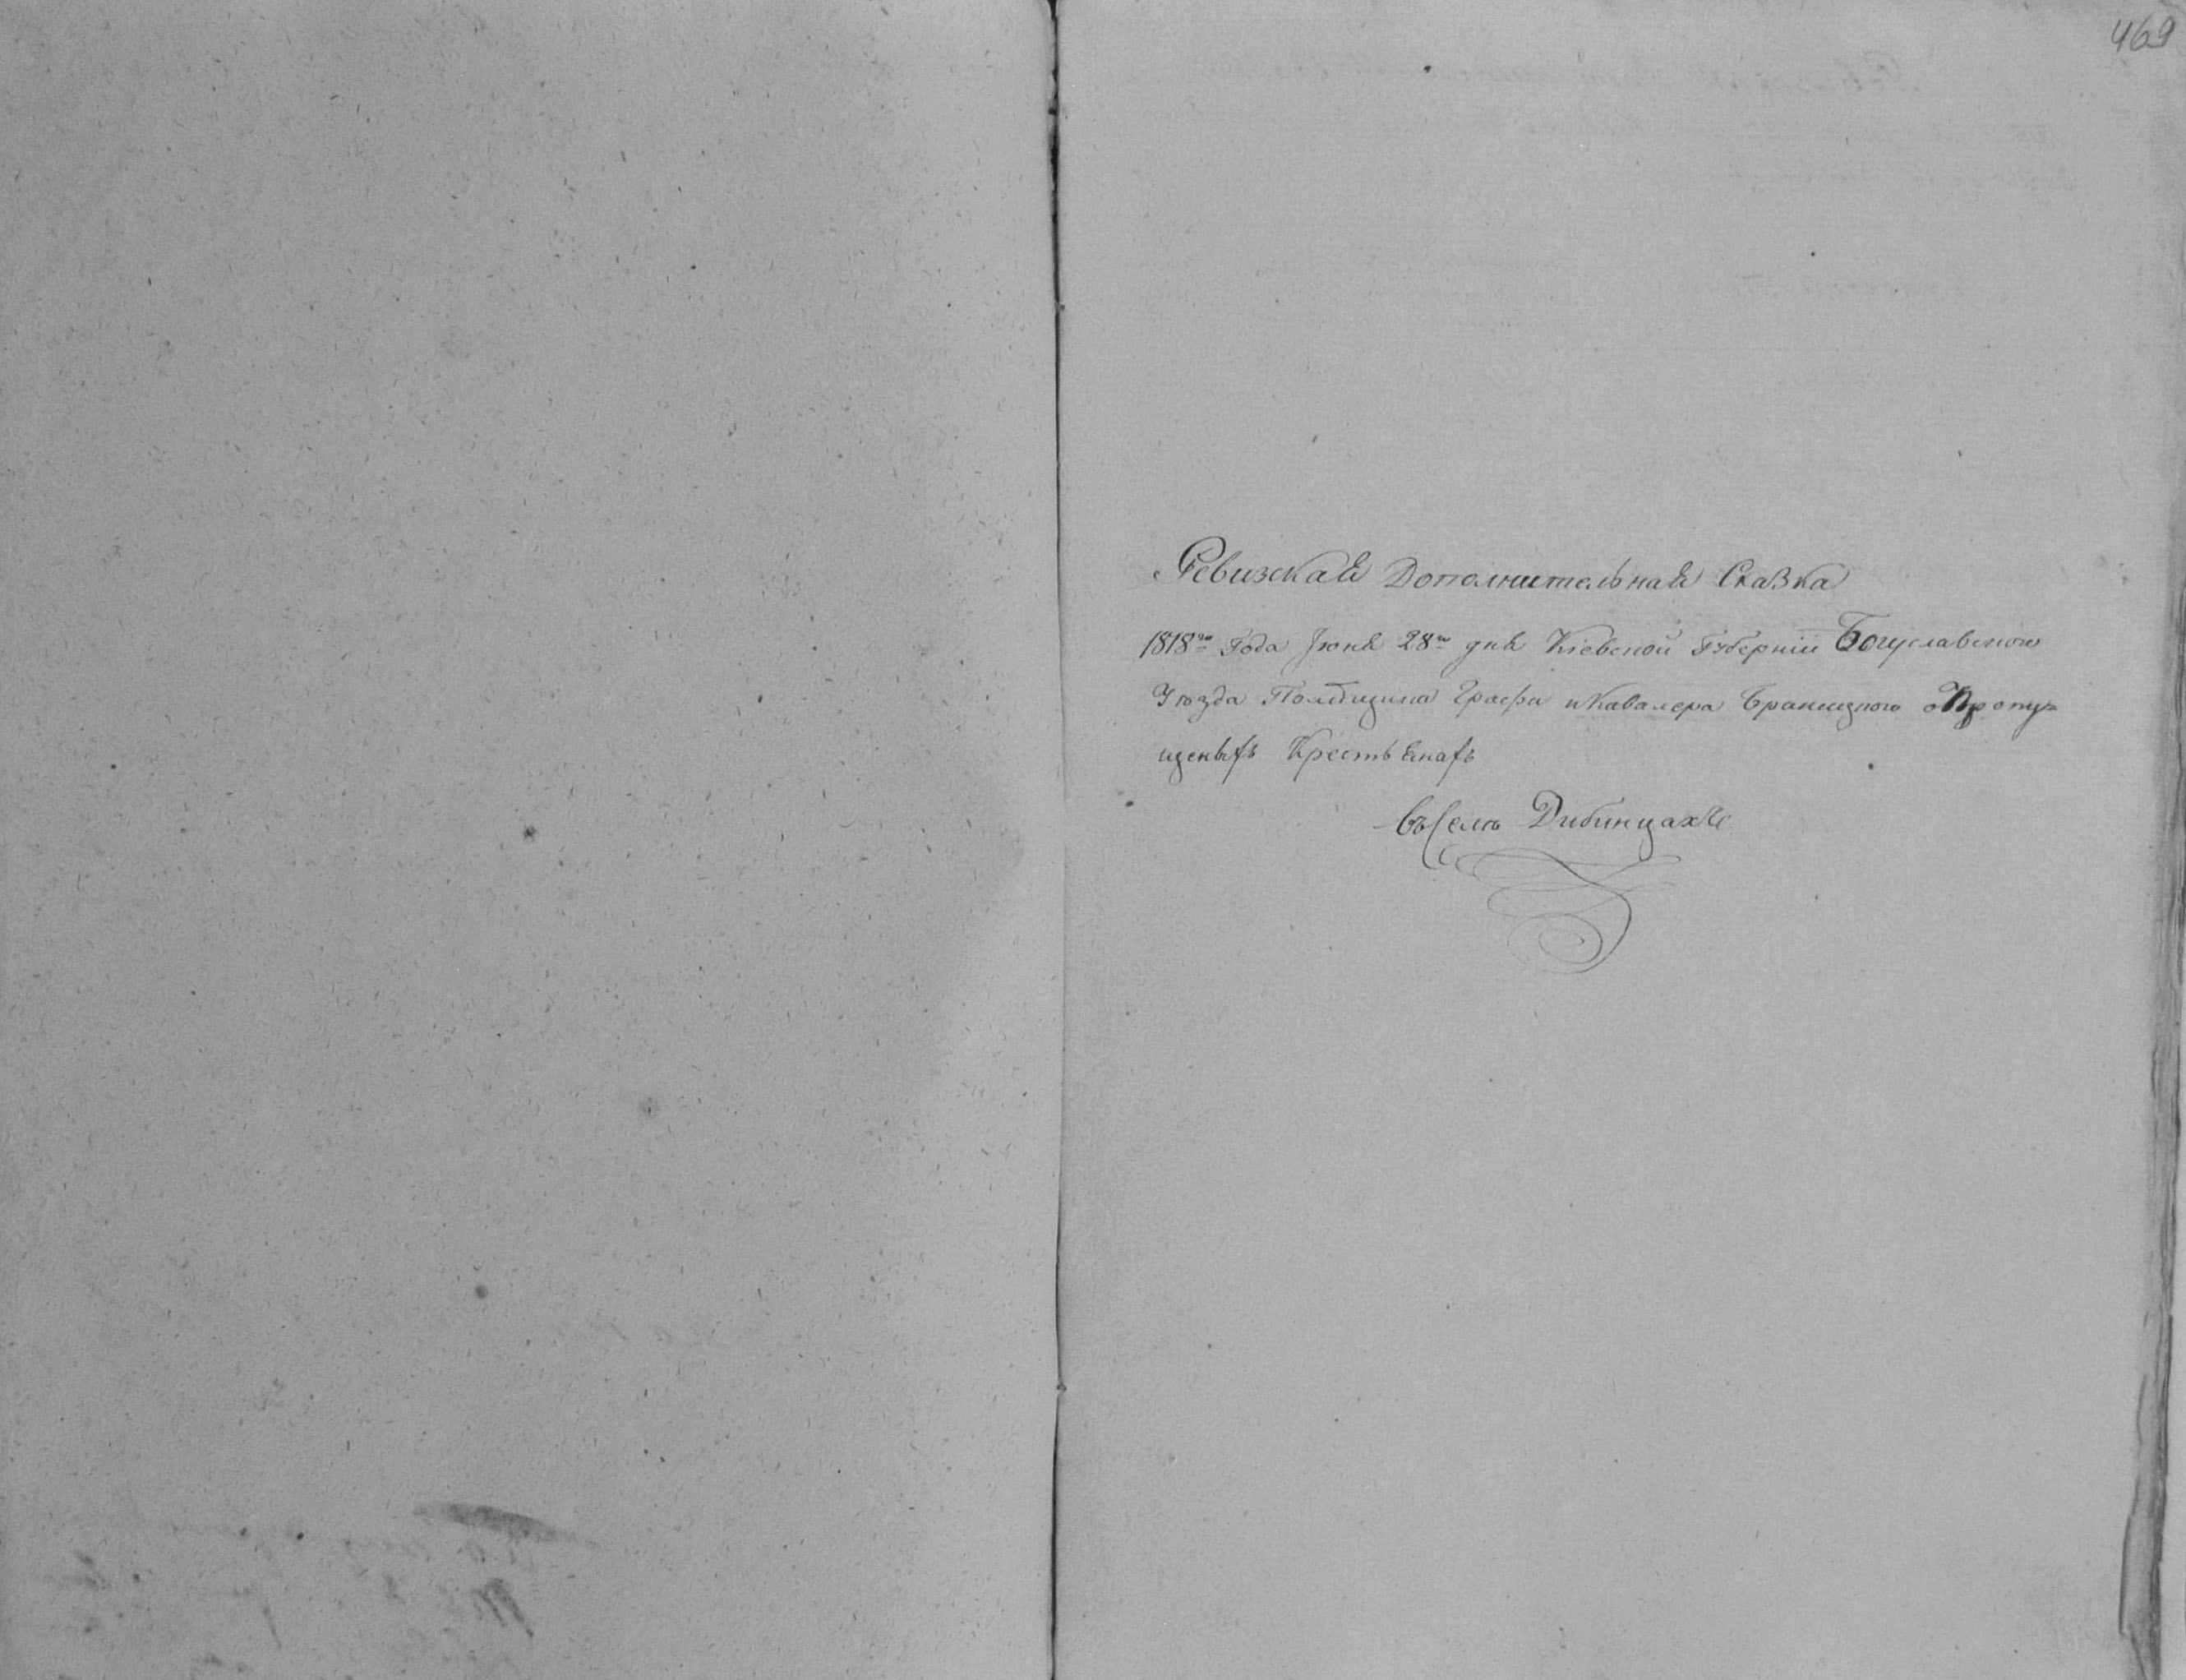 469
Ревизская Дополнительная Сказка
1818го Года Июня 28го дня Кіевской Губерніи Богуславского
Уѣзда Помѣщика Графа и Кавалера Браницкого о Пропу=
щеныхъ Крестьянахъ
въ Селѣ Дибинцахъ